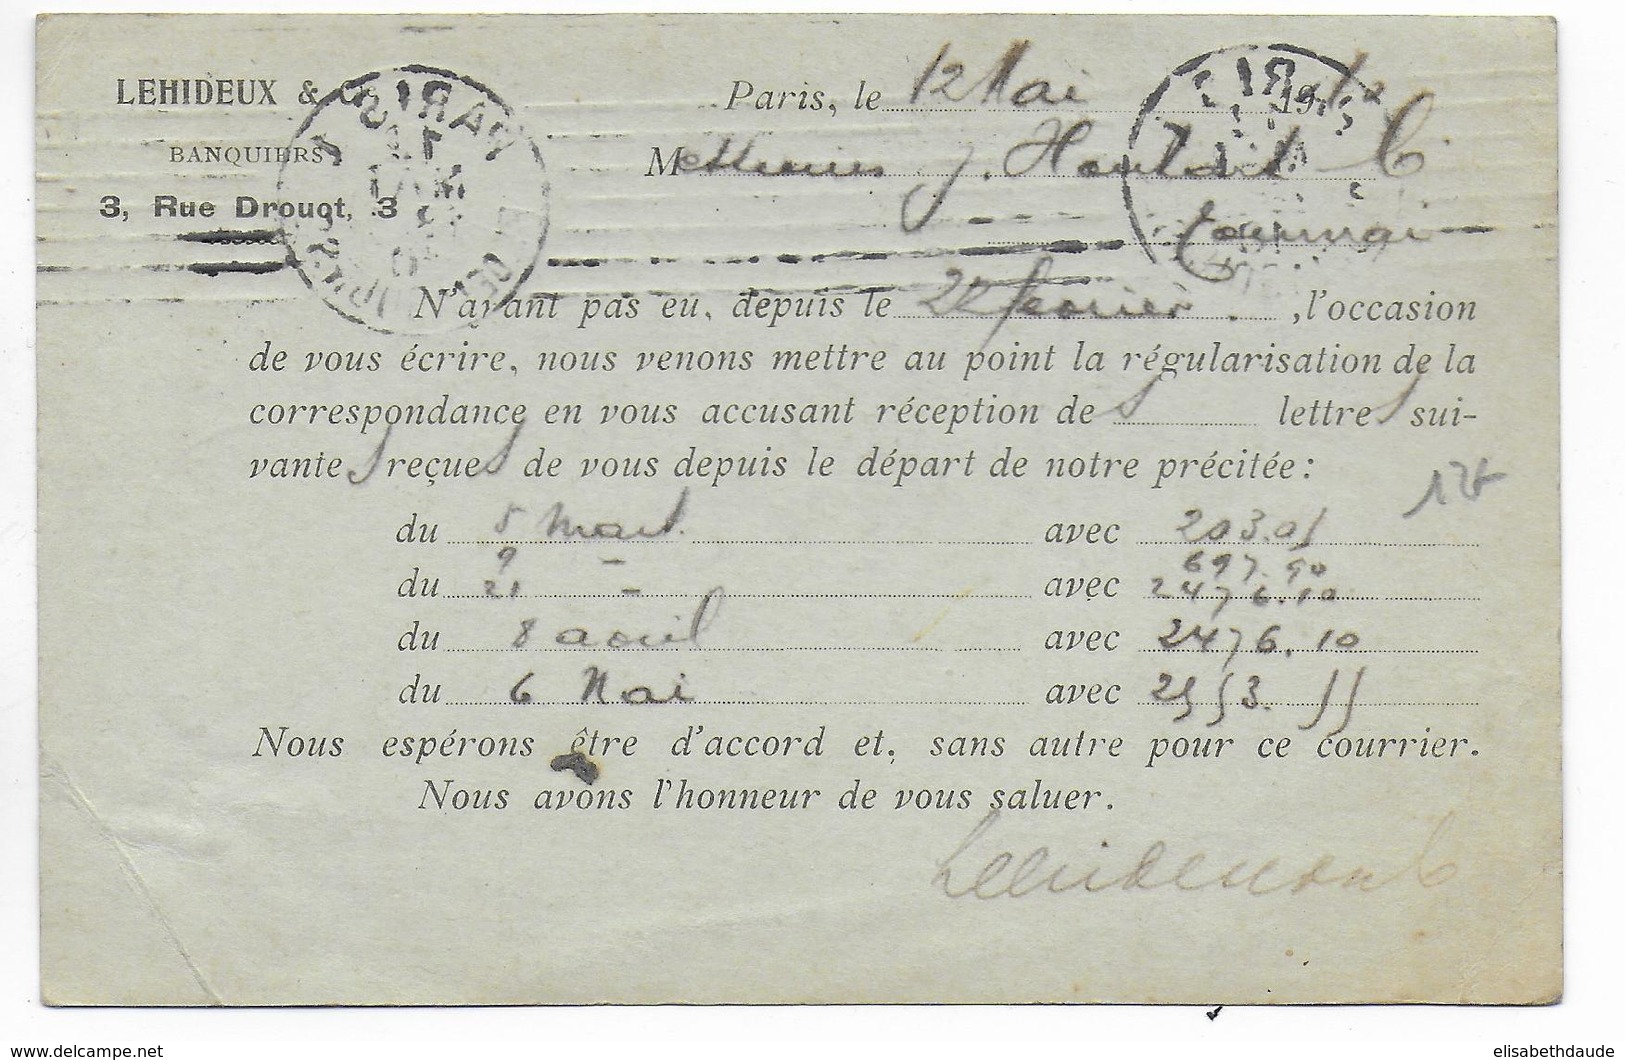 LEHIDEUX & C
BANQUIERS
3, Rue Drouot, 3
Paris, le 12 Mai 19
Messieurs J. & C.
Tournai
N'ayant pas eu, depuis le 22 février . , l'occasion
de vous écrire, nous venons mettre au point la régularisation de la
correspondance en vous accusant réception de s lettres sui-
vantes reçues de vous depuis le départ de notre précitée :
du 5 Mars. avec 203.01
9 - 697.90
du 21 - avec 2476.10
du 8 avril avec 2476.10
du 6 Mai avec 2553.55
Nous espérons être d'accord et, sans autre pour ce courrier.
Nous avons l'honneur de vous saluer.
PARIS
www.delcampe.net
elisabethdaude